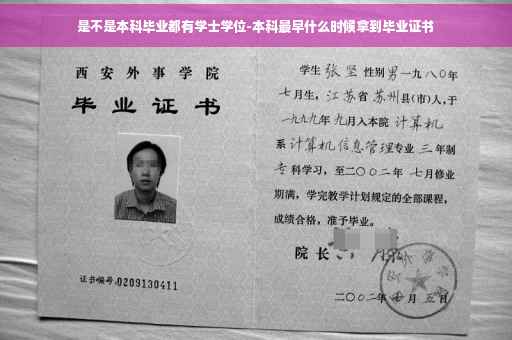 是不是本科毕业都有学士学位-本科最早什么时候拿到毕业证书
西安外事学院
毕业证书
证书编号:0209130411
学生 张坚 性别男一九八〇年
七月生,江苏省苏州县(市)人,于
一九九九年九月入本院 计算机
系计算机信息管理专业三年制
专科学习,至二〇〇二年七月修业
期满,学完教学计划规定的全部课程,
成绩合格,准予毕业。
院长
二〇〇二年 月五日